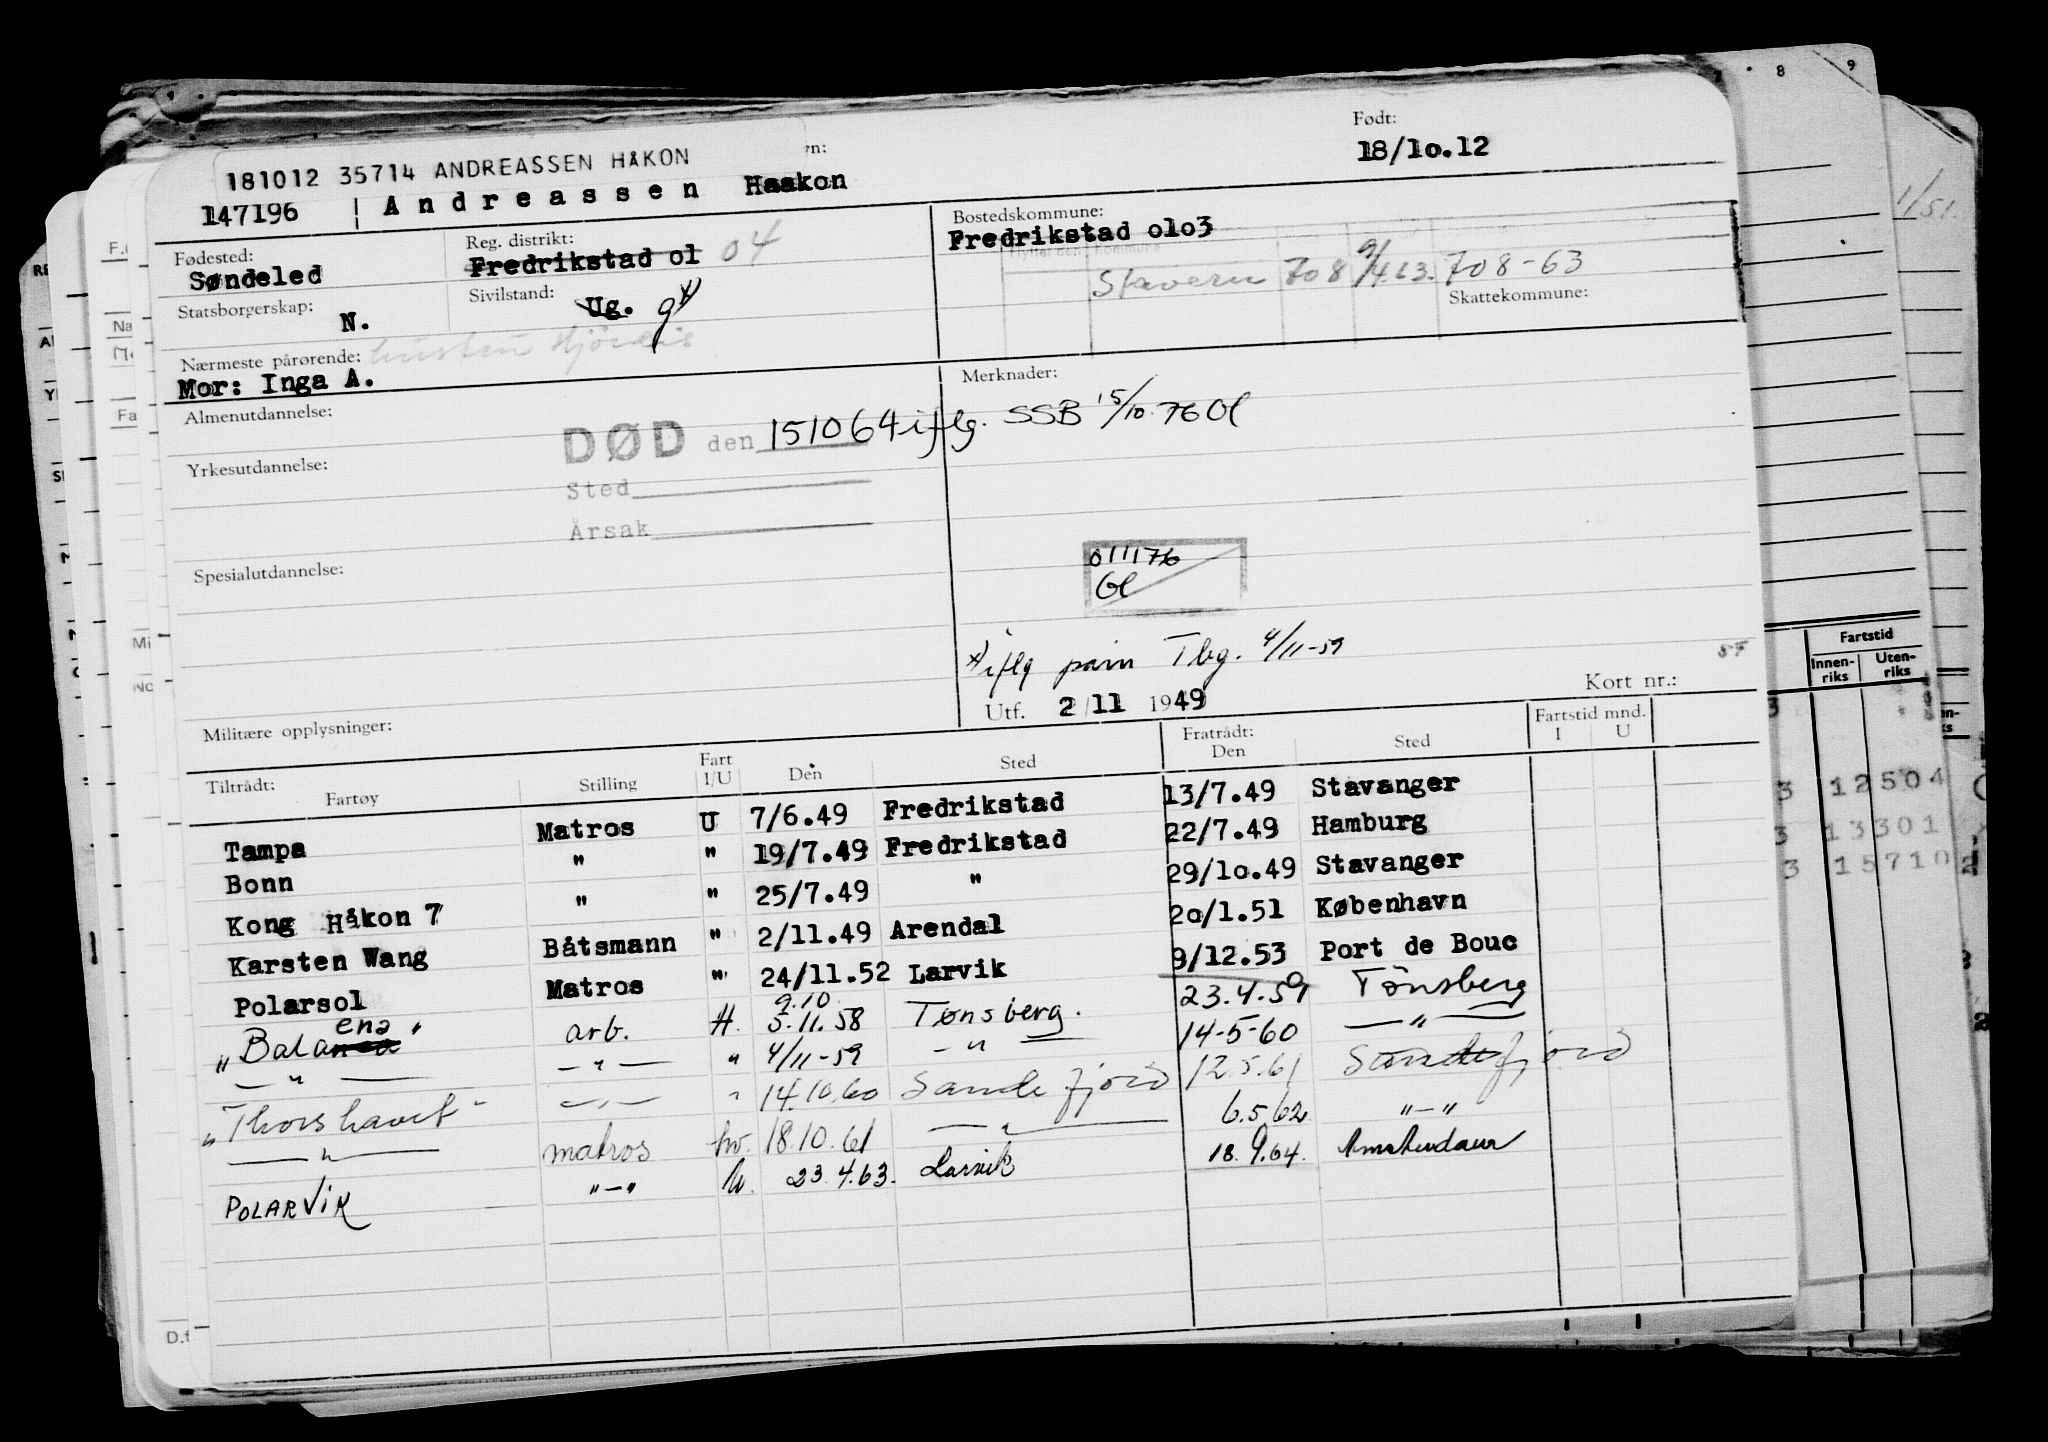 181012 35714 ANDREASSEN HÅKON
147196 Andreassen Haakon
Født:
18/10.12
Fødested:
Søndeled
Reg. distrikt:
Fredrikstad 01 04
Bostedskommune:
Fredrikstad 0103
Stavern 708 9/4.63. 708-63
Skattekommune:
Statsborgerskap:
N.
Sivilstand:
Ug. g x)
Nærmeste pårørende: hustru Hjördis
Mor: Inga A.
Almenutdannelse:
Merknader:
DØD den 151064 iflg. SSB 15/10.76 Gl
Yrkesutdannelse:
Sted
Årsak
Spesialutdannelse:
011176
Gl
x) iflg påm Tbg. 4/11-59
Utf. 2/11 1949
Kort nr.:
Militære opplysninger:
Tiltrådt:
Fartøy Stilling Fart I/U Den Sted Fratrådt: Den Sted Fartstid mnd. I U
Tampa Matros U 7/6.49 Fredrikstad 13/7.49 Stavanger
Bonn " " 19/7.49 Fredrikstad 22/7.49 Hamburg
Kong Håkon 7 " " 25/7.49 " 29/10.49 Stavanger
Karsten Wang Båtsmann " 2/11.49 Arendal 20/1.51 København
Polarsol Matros " 24/11.52 Larvik 9/12.53 Port de Bouc
"Balaena" arb. H. 9.10 5.11.58 Tønsberg. 23.4.59 Tønsberg
—"— —"— " 4/11-59 —"— 14-5-60 —"—
"Thorshavet" —"— " 14.10.60 Sandefjord 12.5.61 Sandefjord
—"— matros hv. 18.10.61 —"— 6.5.62 "—"
POLARVIK "—" U. 23.4.63. Larvik 18.9.64. Amsterdam
8 9
1/51.
Fartstid
Innen-
riks
Uten-
riks
3 12504
3 13301
3 15710 2
D.f